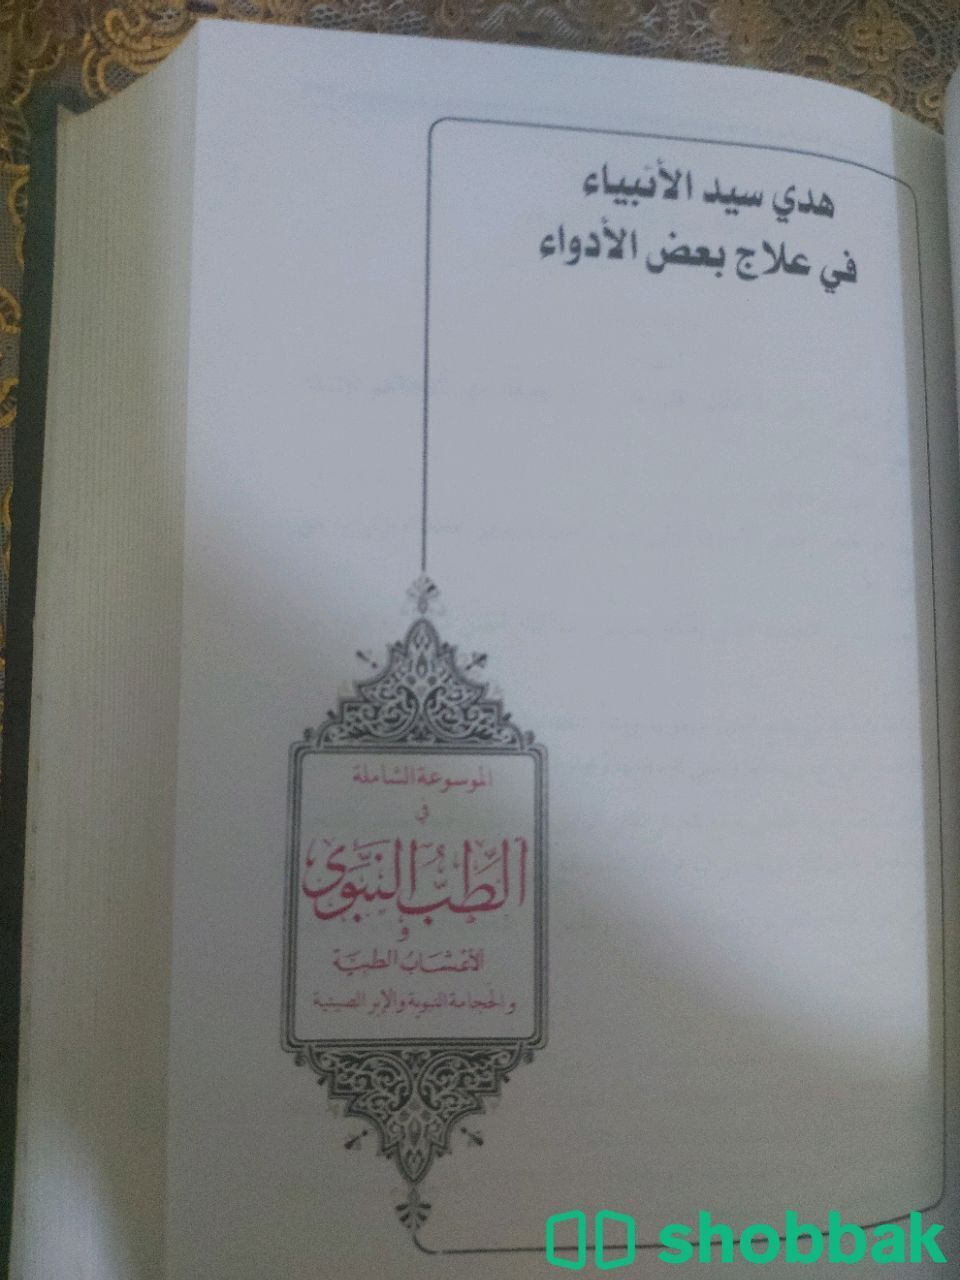 هدي سيد الأنبياء
في علاج بعض الأدواء
الموسوعة الشاملة
في
الطِّبُّ النَّبَوِي
و
الأعْشَابُ الطِّبيَّة
والحجامة النبوية والإبر الصينية
shobbak